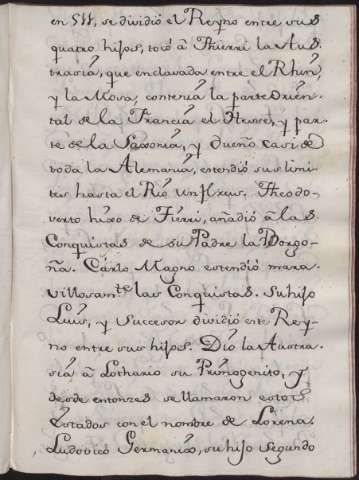 en 511, se dividió el Reyno entre sus
quatro hijos, tocó â Thierri la Aus
trasia, que enclavada entre el Rhin,
y la Mosa, contenia la parte Orien-
tal de la Francia el Hesse, y par-
te de la Saxonia, y dueño casi de
toda la Alemania, estendió sus limi-
tes hasta el Rio
verto hixo de Tierri, añadió â las
Conquistas de su Padre la Borgo-
ña. Carlo Magno estendió mara
villosamte las Conquistas. Su hijo
Luis, y Succesor dividió este Rey-
no entre sus hijos. Dió la Austra-
sia â Lothario su Primogenito, y
desde entonzes se llamaron estos
Estados con el nombre de Lorena.
Ludovico Germanico, su hijo segundo